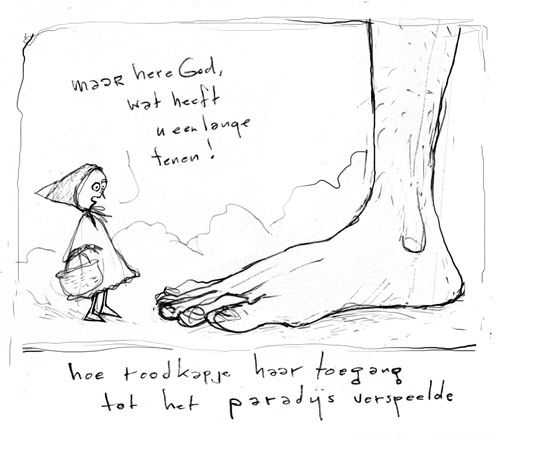 maar here God,
wat heeft
u een lange
tenen!
hoe roodkapje haar toegang
tot het paradijs verspeelde